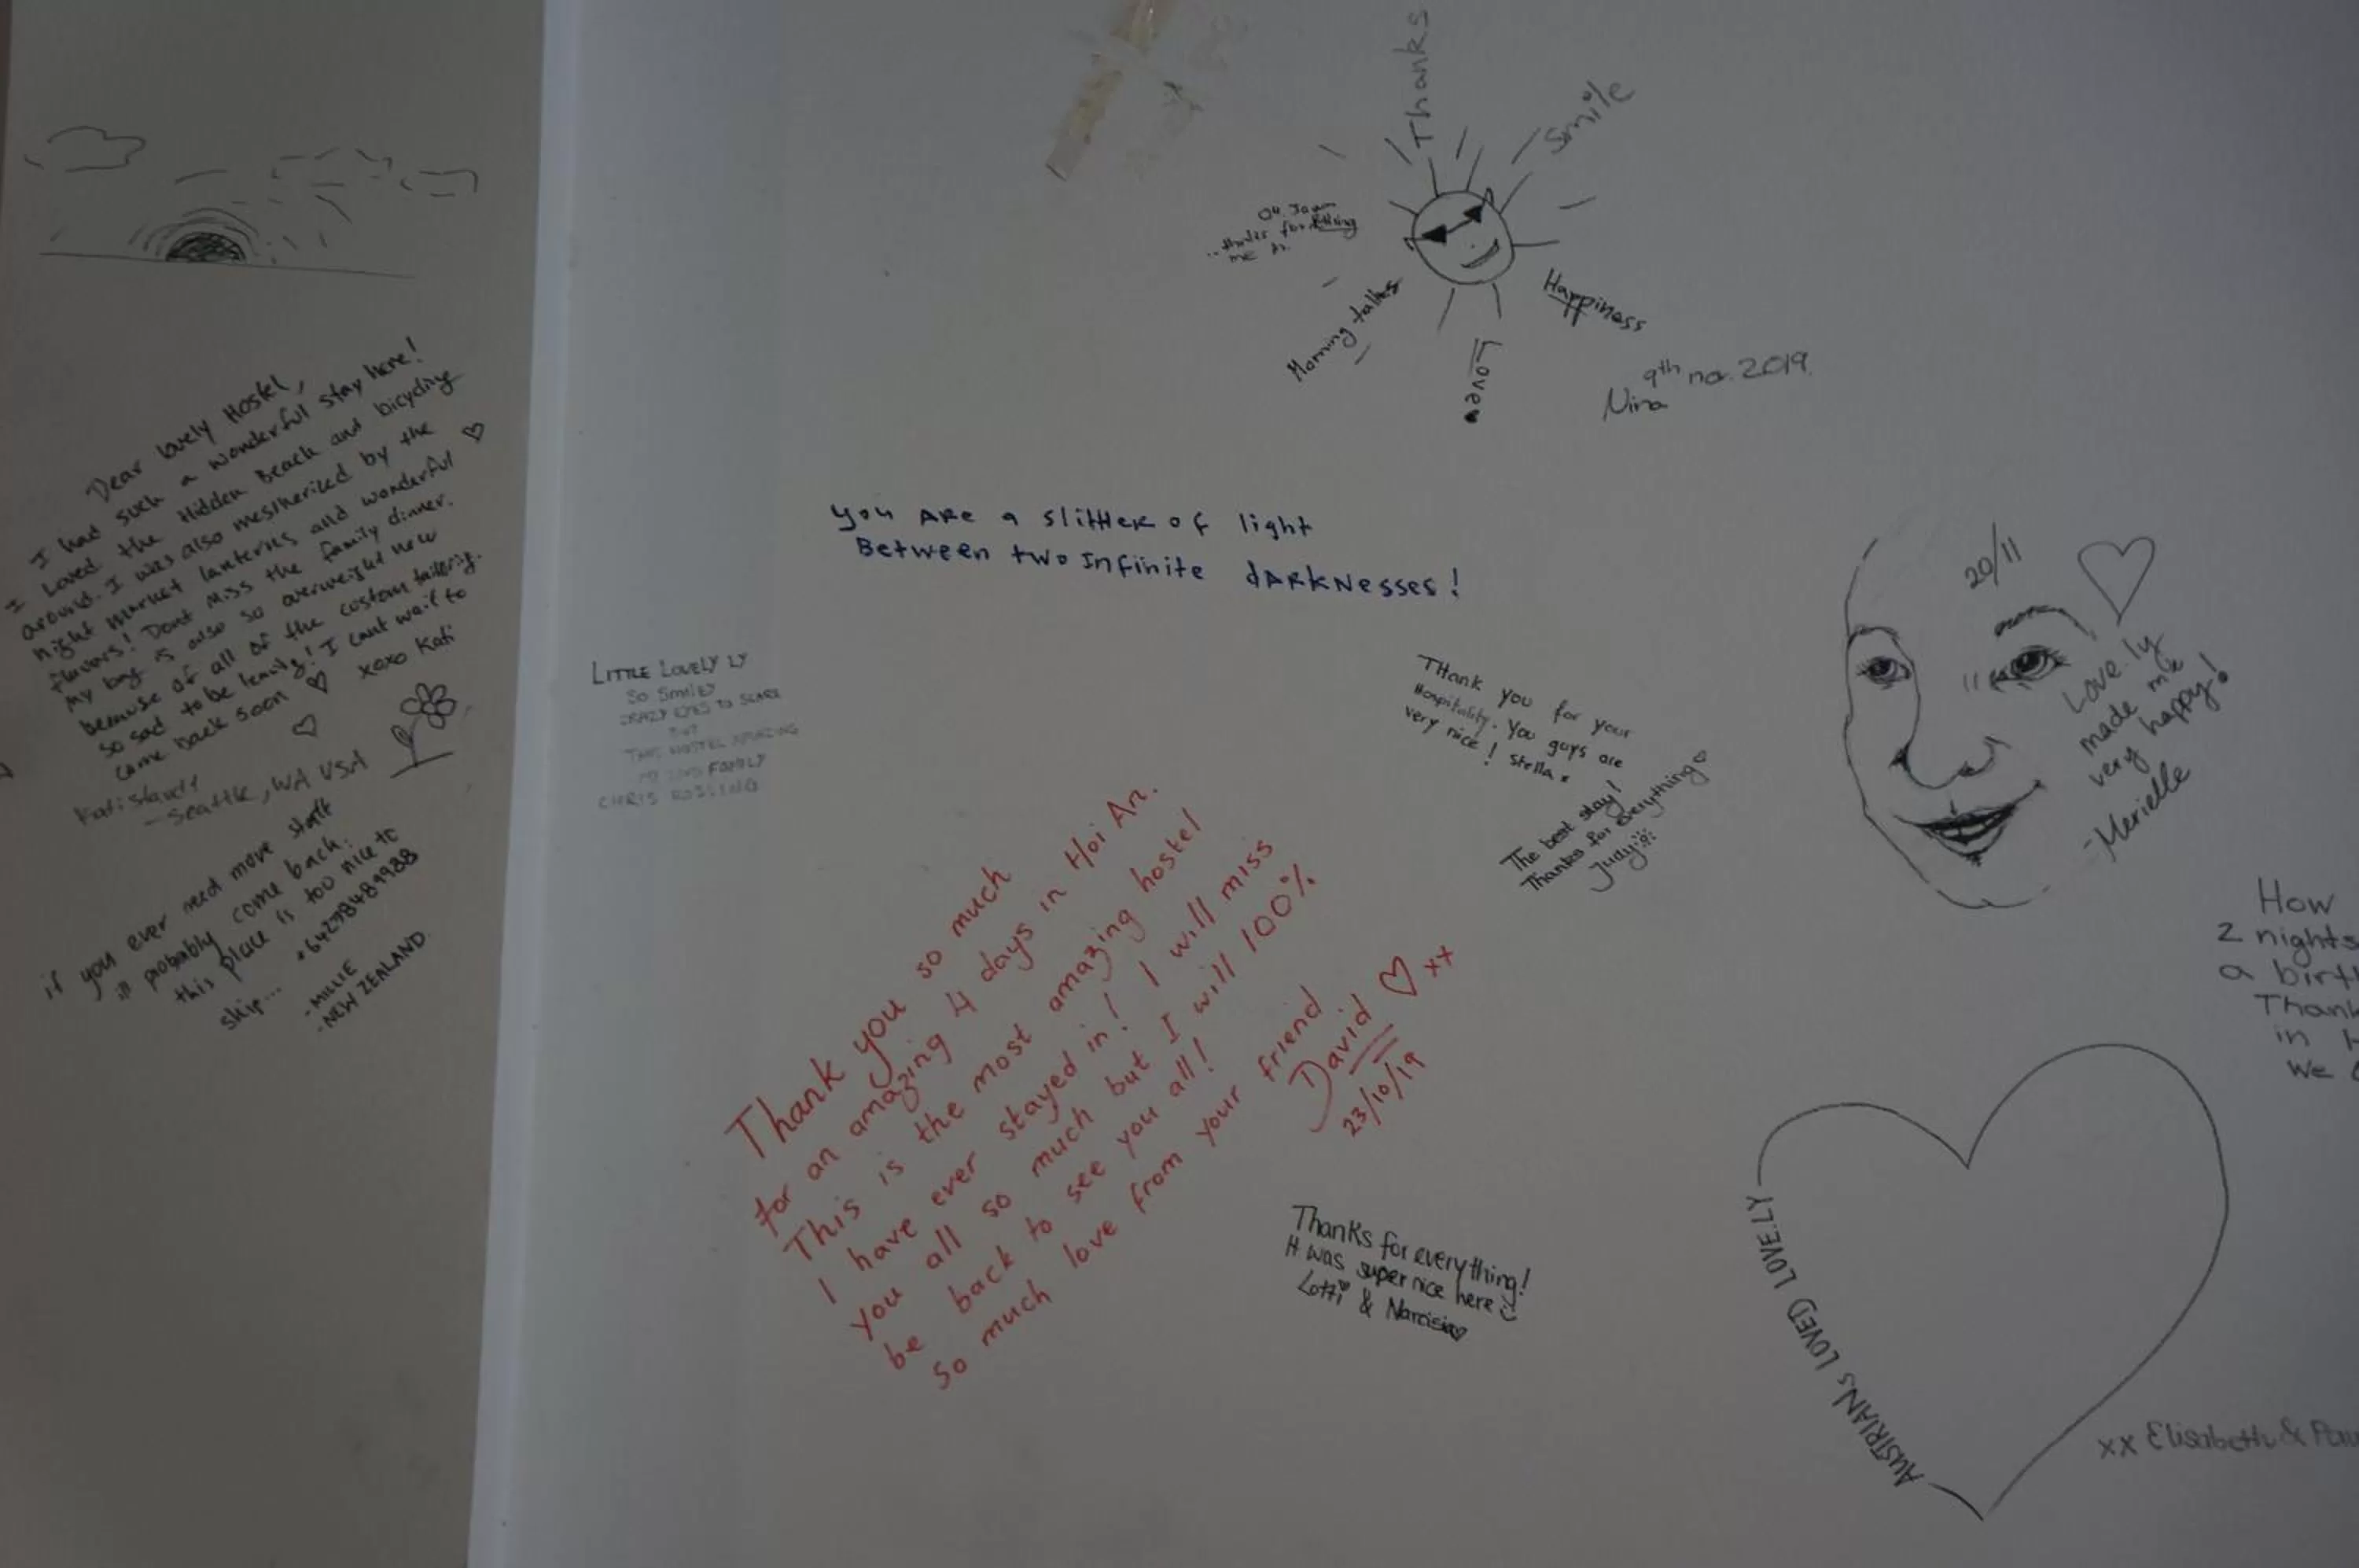 Dear lovely Hostel,
I had such a wonderful stay here!
I Loved the Hidden Beach and bicycling
around. I was also mesmerized by the
night market lanterns and wonderful
flavors! Dont miss the family dinner.
My bag is also so overweight now
because of all of the custom tailoring.
So sad to be leaving! I cant wait to
come back soon ♡ xoxo Kati
- Seattle, WA USA
if you ever need more staff
ill probably come back.
this place is too nice to
skip... +642784489988
- MILLIE
- NEW ZEALAND
LITTLE LOVELY LY
SO SMILEY
CRAZY EYES TO SCARE
BUT
THIS HOSTEL AMAZING
FAMILY
CHRIS
Thanks
Smile
Happiness
Love ♥
Morning talks
me
9th nov. 2019.
Nina
You ARe a slitter of light
Between two Infinite dARkNesses!
THank you for your
Hospitality. You guys are
very nice! Stella x
The best stay!
Thanks for everything ♡
Judy
20/11
Love.ly
made me
very happy!
- Merielle
Thank you so much
for an amazing 4 days in Hoi An.
This is the most amazing hostel
I have ever stayed in! I will miss
you all so much but I will 100%
be back to see you all!
So much love from your friend
David ♡ xx
23/10/19
Thanks for everything!
It was super nice here
Lotti & Narcisia ♡
How
2 nights
a birt
Thank
in
We
AUSTRIANS LOVED LOVE.LY
xx Elisabeth &